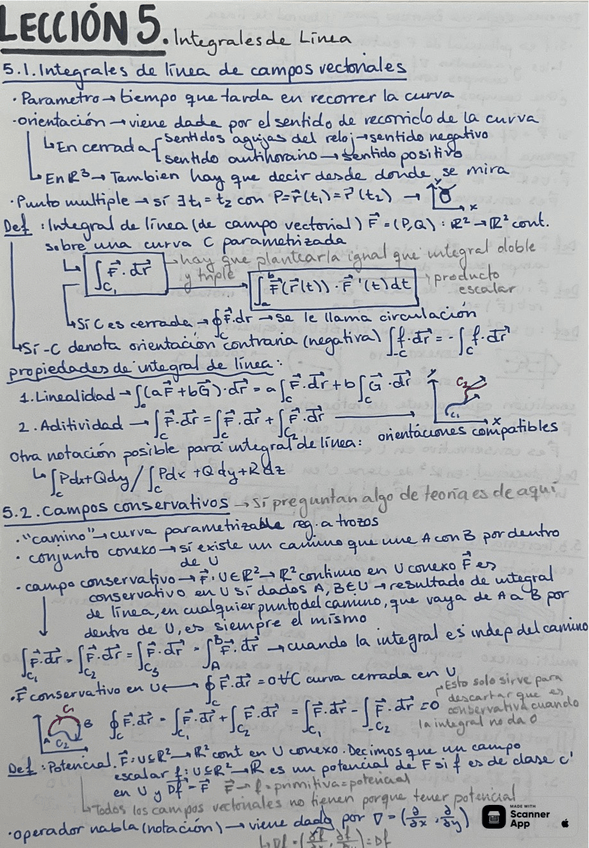 LECCIÓN 5. Integrales de Línea
5.1. Integrales de línea de campos vectoriales
· Parametro → tiempo que tarda en recorrer la curva
· orientación → viene dada por el sentido de recorrido de la curva
↳ En cerrada { sentidos agujas del reloj → sentido negativo
sentido antihorario → sentido positivo
↳ En R³ → Tambien hay que decir desde donde se mira
· Punto multiple → sí ∃ t₁ = t₂ con P = r⃗(t₁) = r⃗(t₂) →
Y
X
Def: Integral de línea (de campo vectorial) F⃗ = (P,Q) : R² → R² cont.
sobre una curva C parametrizada
↳ ∫_C₁ F⃗ · dr⃗ → hay que plantearla igual que integral doble
y triple
→ ∫_a^b F⃗(r⃗(t)) · r⃗'(t) dt → producto
escalar
↳ Si C es cerrada → ∮ F⃗ · dr → se le llama circulación
↳ Si -C denota orientación contraria (negativa) ∫_-C f · dr⃗ = - ∫_C f · dr⃗
propiedades de integral de línea:
1. Linealidad → ∫_C (aF⃗ + bG⃗) · dr⃗ = a ∫_C F⃗ · dr⃗ + b ∫_C G⃗ · dr⃗
Y C₂ C₁ X
2. Aditividad → ∫_C F⃗ · dr⃗ = ∫_C F⃗ · dr⃗ + ∫_C F⃗ · dr⃗ → orientaciones compatibles
otra notación posible para integral de línea:
↳ ∫_C Pdx + Qdy / ∫_C Pdx + Qdy + Rdz
5.2. Campos conservativos → Si preguntan algo de teoría es de aquí
· "camino" → curva parametrizable reg. a trozos
· conjunto conexo → sí existe un camino que une A con B por dentro
de U
· campo conservativo → F⃗ : U∈R² → R² continuo en U conexo F⃗ es
conservativo en U sí dados A, B∈U → resultado de integral
de línea, en cualquier punto del camino, que vaya de A a B por
dentro de U, es siempre el mismo
∫_C₁ F⃗ · dr⃗ = ∫_C₂ F⃗ · dr⃗ = ∫_C₃ F⃗ · dr⃗ = ∫_A^B F⃗ · dr⃗ → cuando la integral es indep del camino
· F⃗ conservativo en U ↔ ∮_C F⃗ · dr⃗ = 0 ∀C curva cerrada en U
Esto solo sirve para
descartar que es
conservativa cuando
la integral no da 0
C₁ A B C₂
∮_C F⃗ · dr⃗ = ∫_C₁ F⃗ · dr⃗ + ∫_C₂ F⃗ · dr⃗ = ∫_C₁ F⃗ · dr⃗ - ∫_-C₂ F⃗ · dr⃗ = 0
Def: Potencial. F⃗ : U⊆R² → R² cont en U conexo. Decimos que un campo
escalar f : U⊆R² → R es un potencial de F si f es de clase C¹
en U y Df = F⃗ F⃗ → f = primitiva = potencial
↳ Todos los campos vectoriales no tienen porque tener potencial
· operador nabla (notación) → viene dado por ∇ = (∂/∂x, ∂/∂y)
MADE WITH
Scanner
App